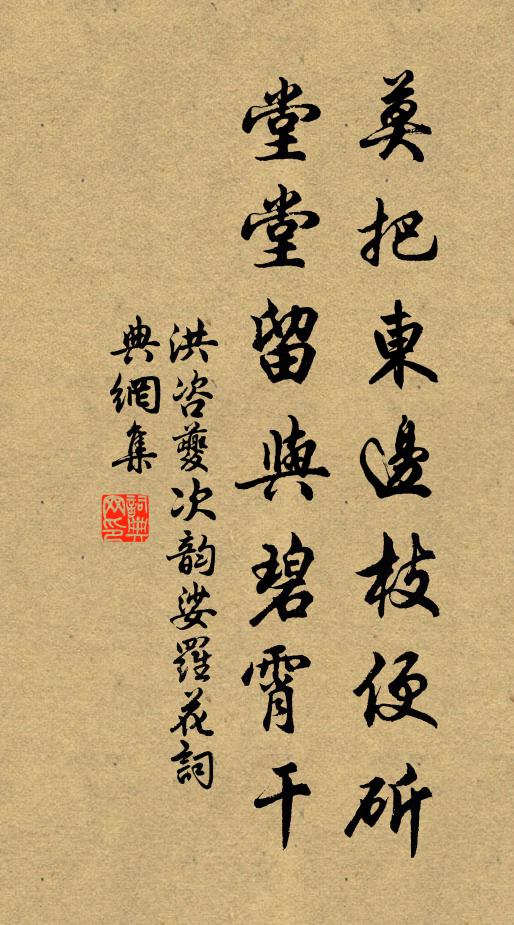 莫把東邊枝便斫
堂堂留與碧霄干
洪咨夔次韵娑羅花詞
典網集
詞典網印